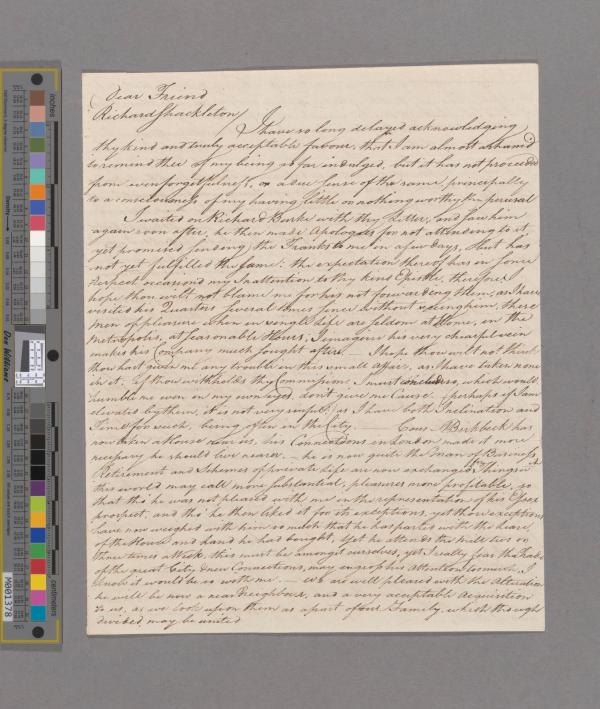 Dear Friend
Richard Shackleton
I have so long delayed acknowledging
thy kind and truly acceptable favour, that I am almost asham'd
to remind thee of my being so far indulged, but it has not proceeded
from even forgetfulness, or a due sense of the same, principally
to a consciousness of my having little or nothing worthy thy perusal
I waited on Richard Burke with thy Letter, and saw him
again soon after, he then made Apologies for not attending to it,
yet promised sending the Franks to me in a few days, that has
not yet fulfilled the same: the expectation thereof has in some
respect occasion'd my Inattention to thy kind Epistle, therefore I
hope thou wilt not blame me for not forwarding them, as I have
visited his Quarters several times since without seeing him, these
Men of pleasure when in single life are seldom at Home, in the
Metropolis, at seasonable Hours, I imagine his very chearful vein
makes his Company much sought after. I hope thou wilt not think
thou hast given me any trouble in this small Affair, as I have taken none
in it, if thou withholds thy Commission, I must conclude so, which would
humble me even in my own eyes, don't give me Cause. (perhaps if I am
elevated by them, it is not very sinful) as I have both Inclination and
Time for such, being often in the City. Cous. M Birkbeck has
now taken a House near us, his Connections in London made it more
necessary he should live nearer. he is now quite the Man of Business
Retirement and Schemes of private life are now exchanged for Things
this world may call more substantial, pleasures more profitable, so
that tho' he was not pleased with me in the representation of his Epsx
prospect, and tho' he then liked it for its exceptions, yet those exceptions
have now weighed with him so much that he has parted with the Lease,
of the House and Land he had bought, Yet he attends the Mill two or
three times a Week, this must be amongst ourselves, yet I really fear the Trade
of the great City & new Connections, may engross his Attention too much, I
know it would be so with me. — we are well pleased with the Alteration
he will be now a near Neighbour, and a very acceptable Acquisition
to us, as we look upon them as a part of our Family, which though
divided, may be united
inches
centimetres
Density
Don Williams
M001378